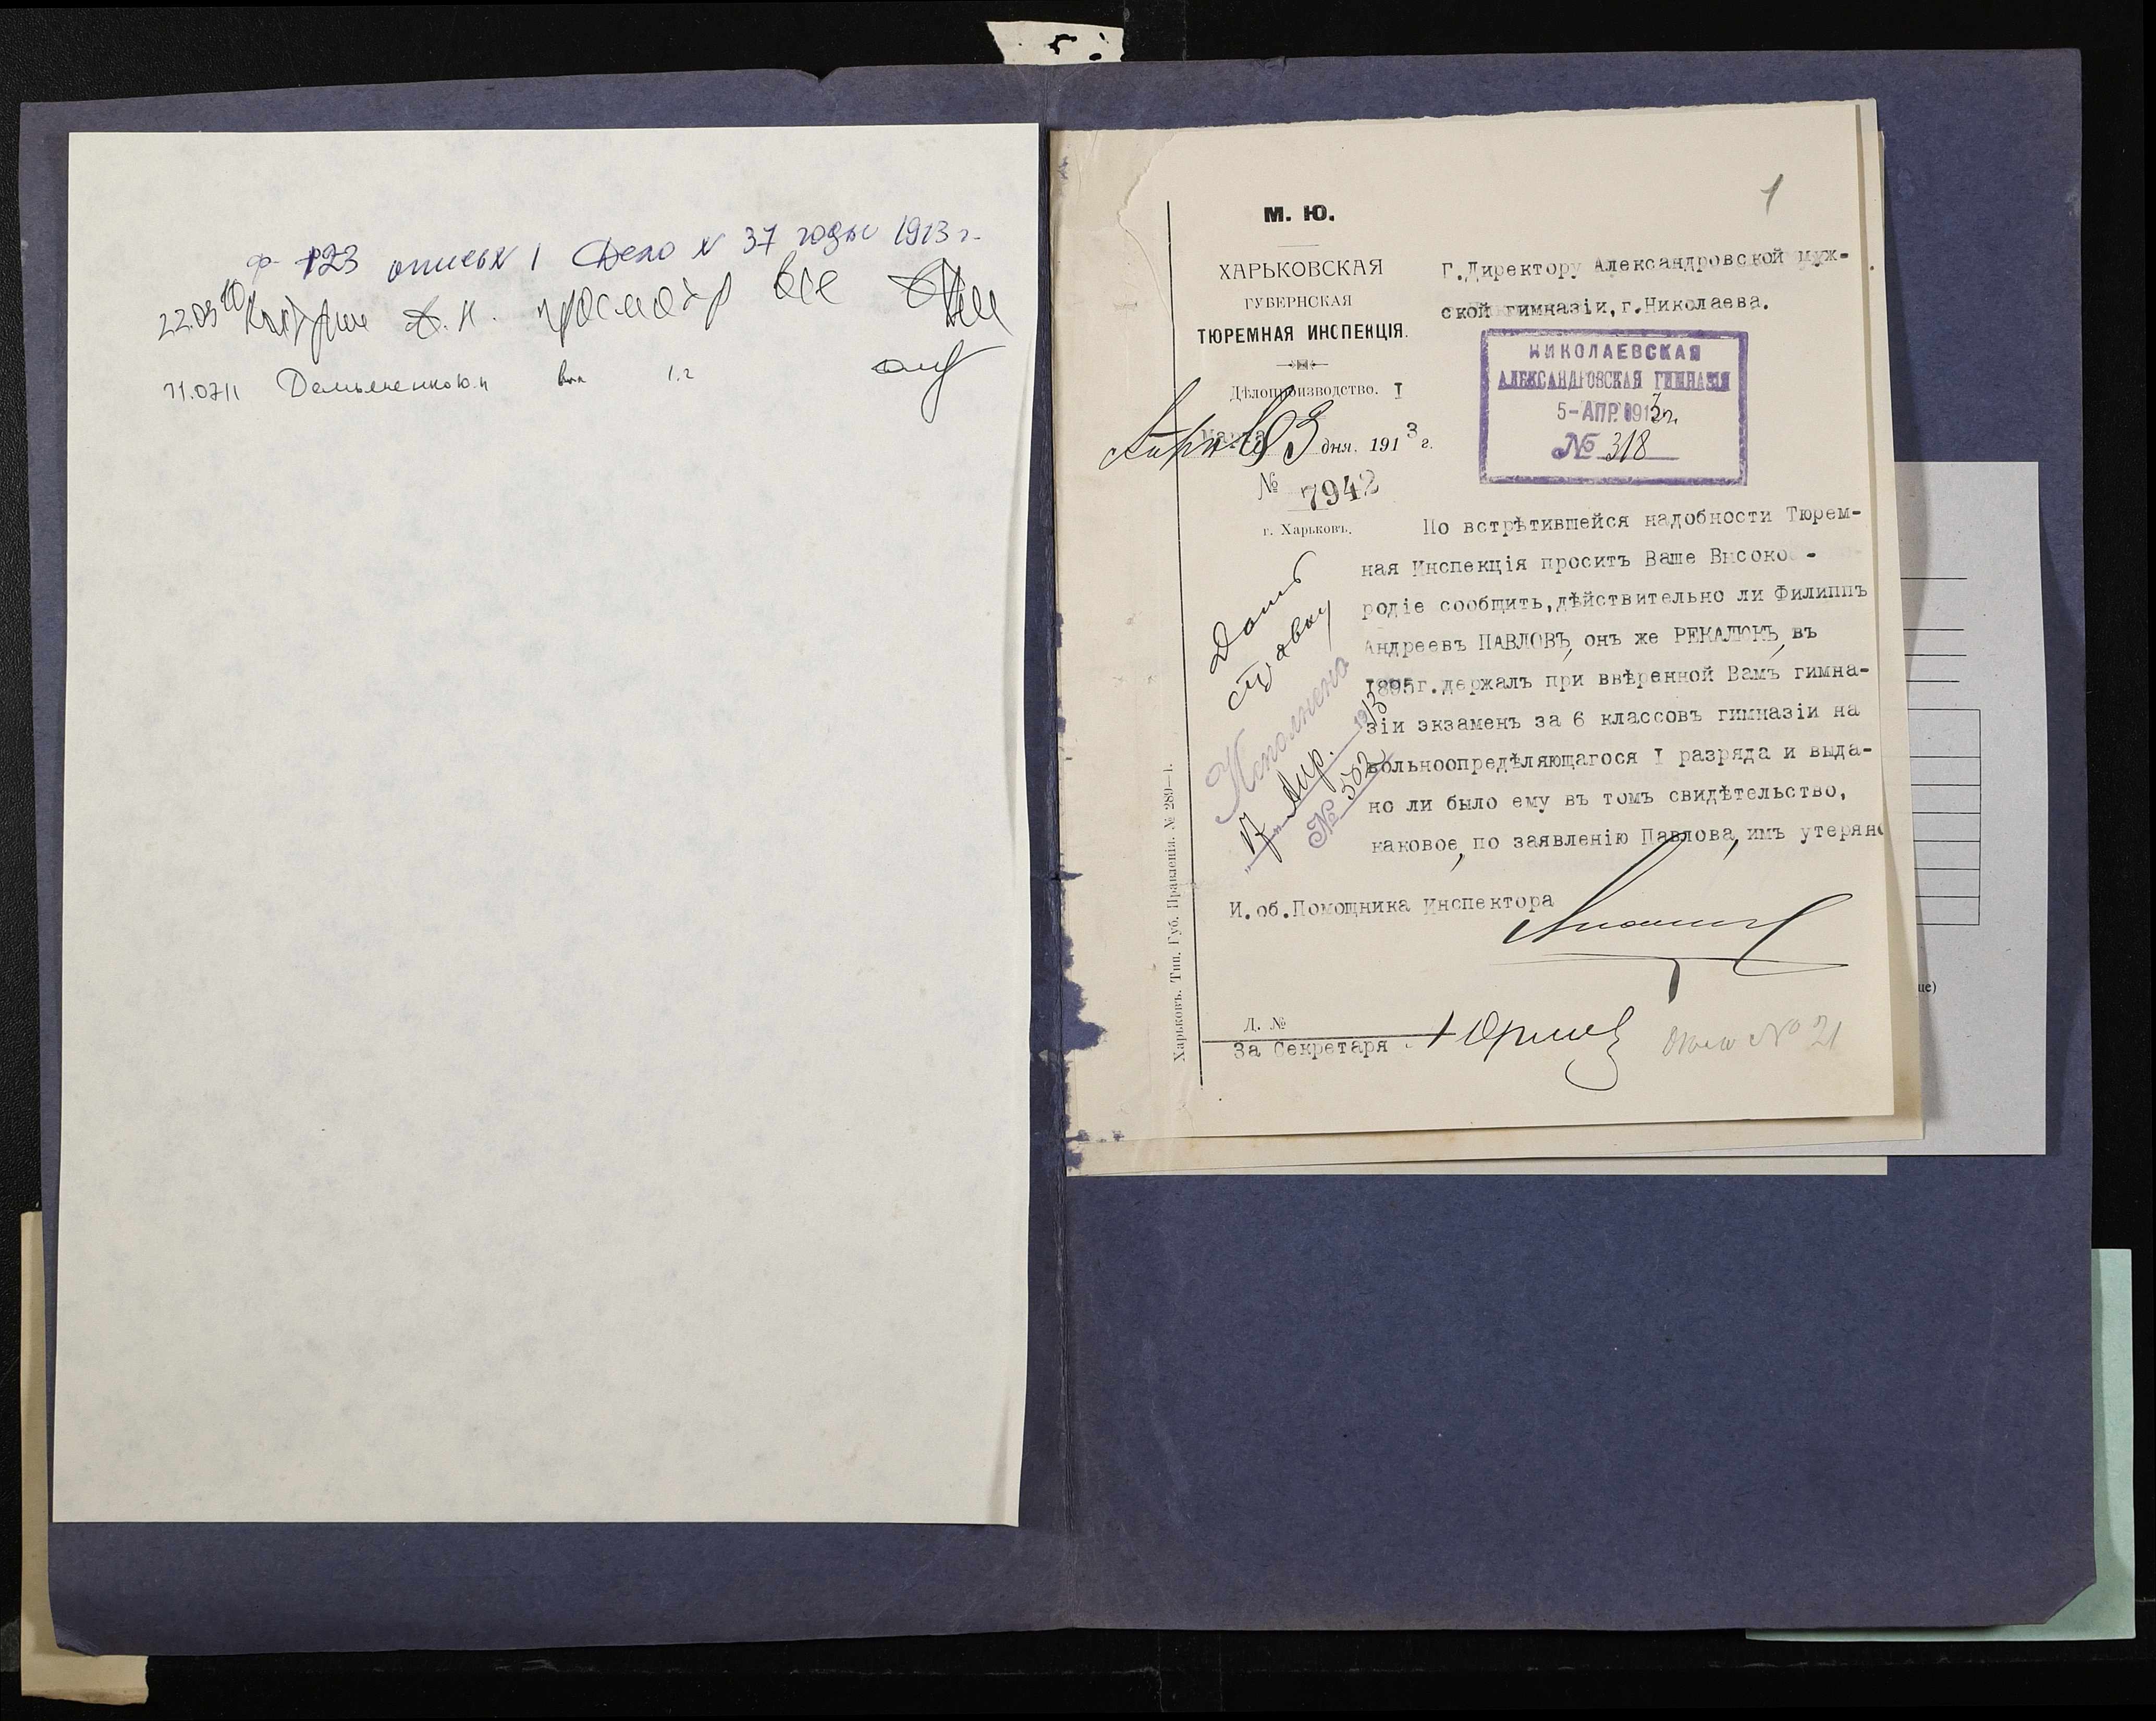 ф- 123 опись N 1 Дело N 37 годы 1913 г.
22.03 10 просмотр все
11.07 11 Демьяненко Ю.Н
1
М. Ю.
ХАРЬКОВСКАЯ
ГУБЕРНСКАЯ
ТЮРЕМНАЯ ИНСПЕКЦІЯ.
Дѣлопроизводство. I
Марта
Апрѣля 3 дня. 1913 г.
№ 7942
г. Харьковъ.
Г.Директору Александровской муж-
ской гимназіи, г.Николаева.
НИКОЛАЕВСКАЯ
АЛЕКСАНДРОВСКАЯ ГИМНАЗІЯ
5-АПР. 1913 г.
№ 318
По встрѣтившейся надобности Тюрем-
ная Инспекція проситъ Ваше Высоко-
родіе сообщить, дѣйствительно ли Филиппъ
Андреевъ ПАВЛОВЪ, онъ же РЕКАЛЮКЪ, въ
1895г. держалъ при ввѣренной Вамъ гимна-
зіи экзаменъ за 6 классовъ гимназіи на
вольноопредѣляющагося I разряда и выда-
но ли было ему въ томъ свидѣтельство,
каковое, по заявленію Павлова, имъ утеряно
Дать
справку
Исполнено
"17" Апр. 1913
№ 502
И.об.Помощника Инспектора
Д. №
За Секретаря
№ 21
Харьковъ. Тип. Губ. Правленія. № 289—1.
ие)